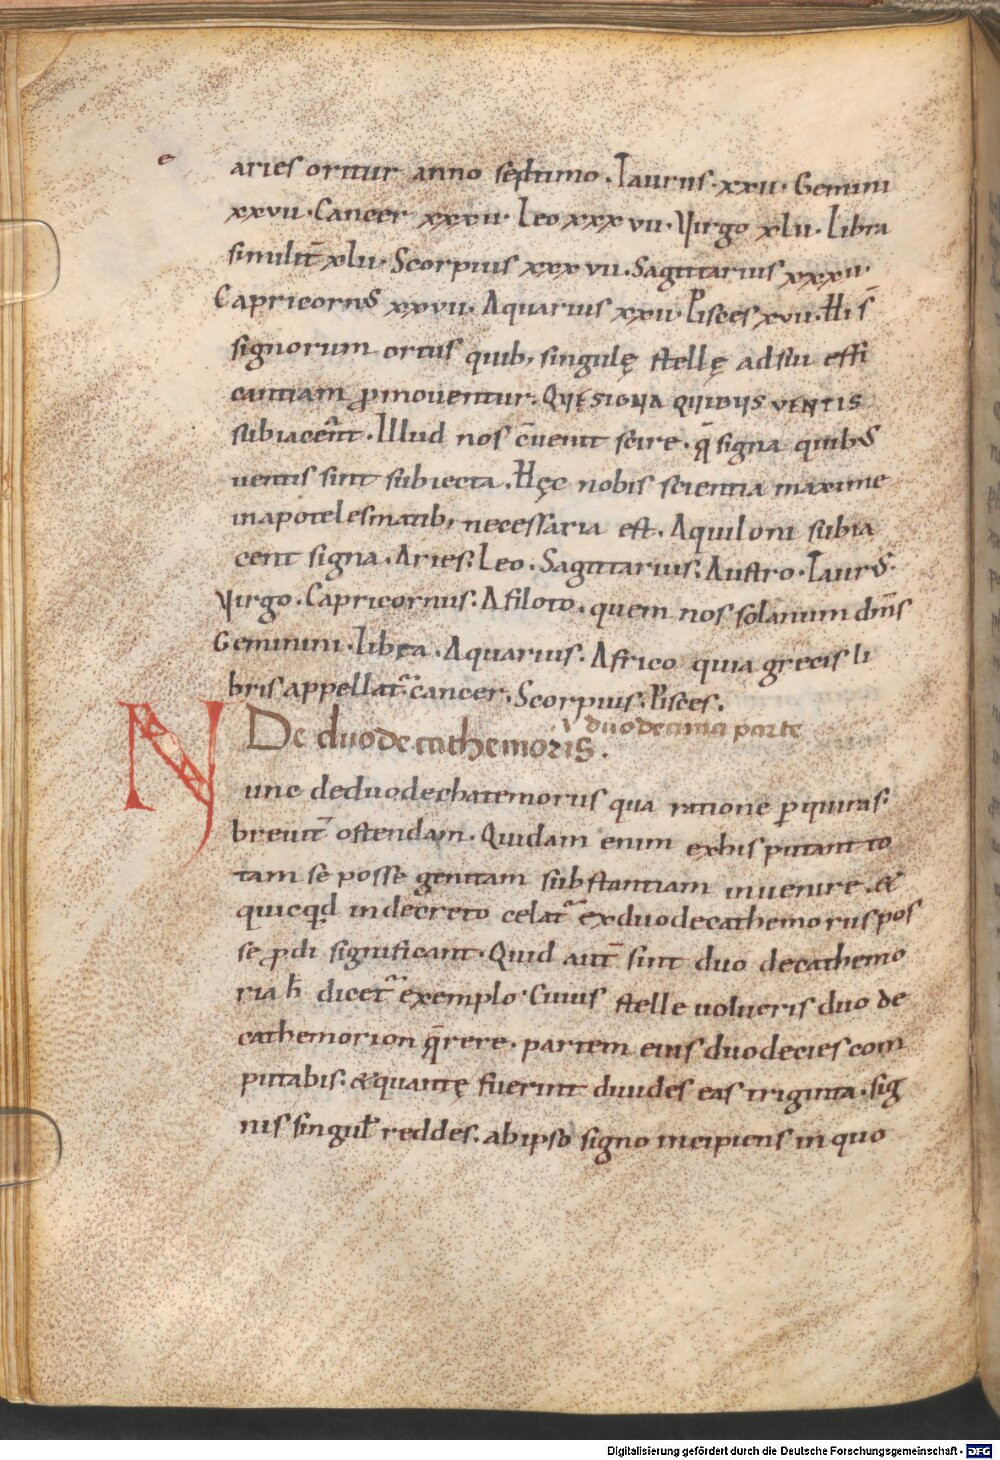 e
aries oritur anno septimo. Taurus. xxii. Gemini
xxvii. Cancer xxxii. Leo xxxvii. Virgo xlii. Libra
similit̄ xlii. Scorpius xxxvii. Sagittarius xxxii.
Capricorn᷒ xxvii. Aquarius xxii. Pisces xvii. Hi s̄
signorum ortus quib; singulę stellę ad sui effi
cientiam ꝓmoventur. QUĘ SIGNA QUIBUS VENTIS
subiacent. Illud nos c̄uenit scire. q̄ signa quib᷒
uentis sint subiecta. Hęc nobis scientia maxime
in apotelesmatib; necessaria est. Aquiloni subia
cent signa. Aries. Leo. Sagittarius. Austro. Taur᷒.
Virgo. Capricornus. Afiloto. quem nos solanum dm̄s
Gemini. libra. Aquarius. Africo quia grecis li
bris appellat᷑. cancer. Scorpius. Pisces.
De duodecathemoriis. ł duodecima parte
Nunc de duodechatemoriis qua ratione ꝑquiras.
breuit̄ ostendam. Quidam enim ex his putant to
tam se posse genituram substantiam inuenire. &
quicq̇d in decreto celat᷑ ex duodecathemoriis pos
se ꝓdi significant. Quid aut̄ sint duo decathemo
ria h̄ dicet᷑ exemplo. Cuius stelle uolueris duo de
cathemorion q̄rere. partem eius duodecies com
putabis. & quantę fuerint diuides eas triginta. sig
nis singul̄ reddes. ab ipso signo incipiens in quo
Digitalisierung gefördert durch die Deutsche Forschungsgemeinschaft - DFG